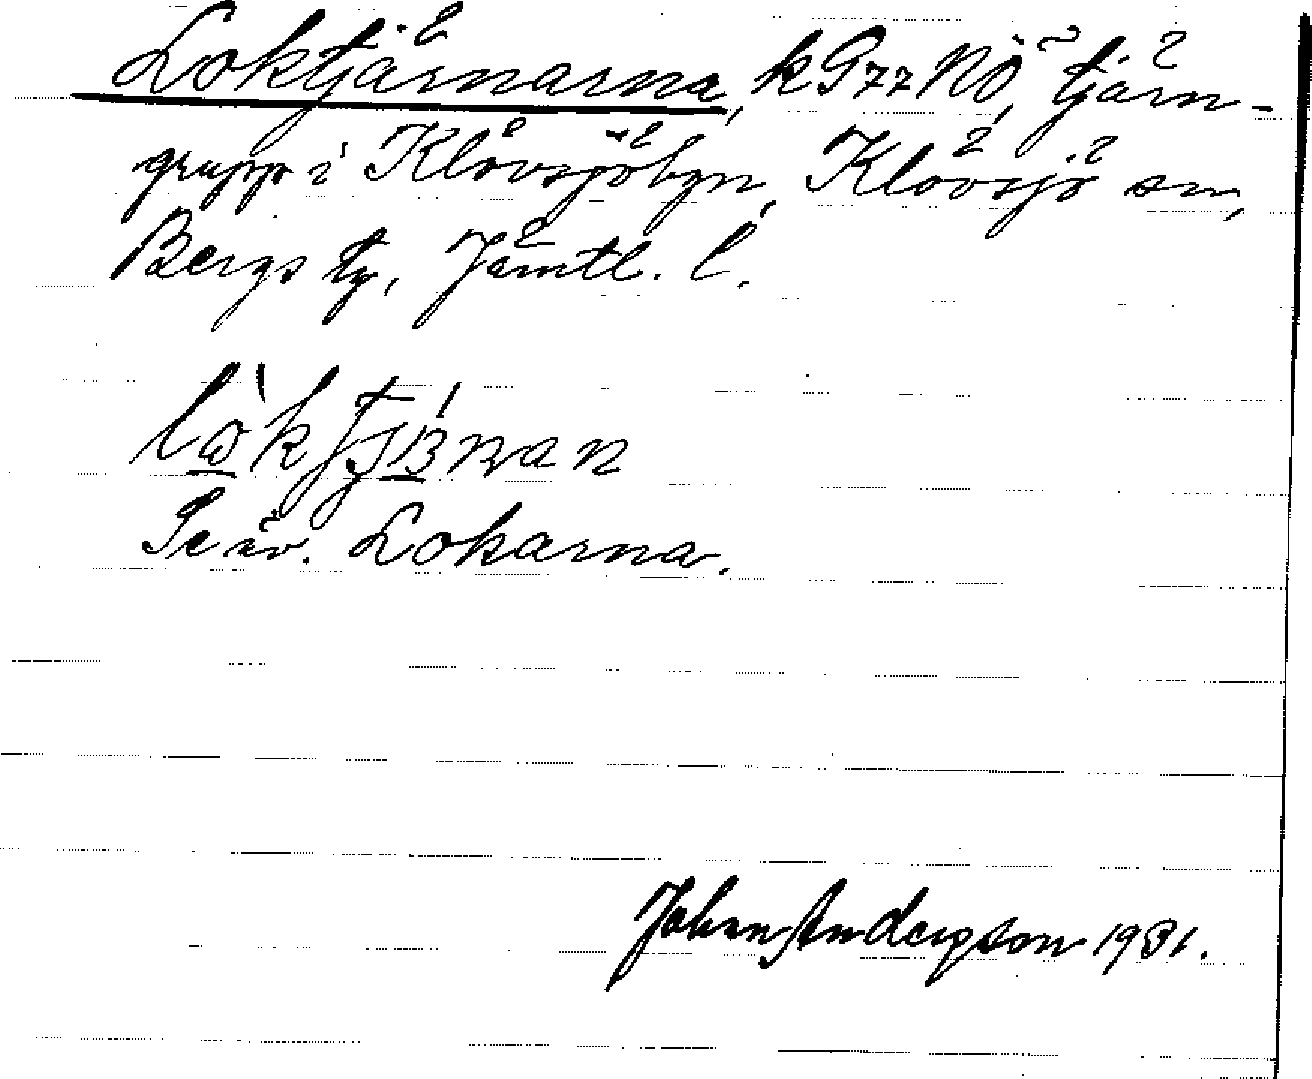 Loktjärnarna, k G77 NÖ, tjärn-
grupp i Klövsjöbyn, Klövsjö sn,
Bergs tg, Jämtl. l.
Se äv. Lokarna.
John Anderson 1931.